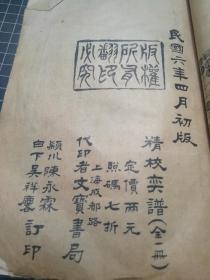 民國六年四月初版
版權
所有
翻印
必究
精校奕譜（全一冊）
定價兩元
照碼七折
上海成都路
代印者文寶書局
潁川陳永霖
白下吳祥麐
訂印